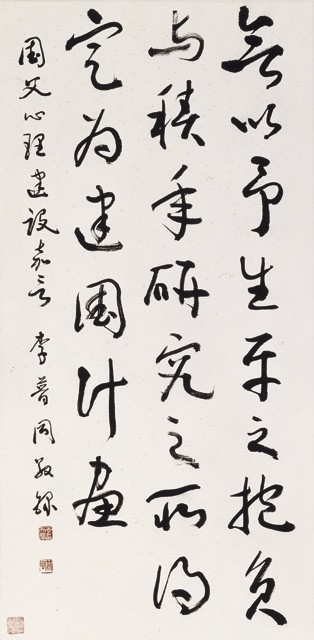 無以予生平之抱負
与積年研究之所得
定為建國計畫
國父心理建設嘉言 李普同敬錄